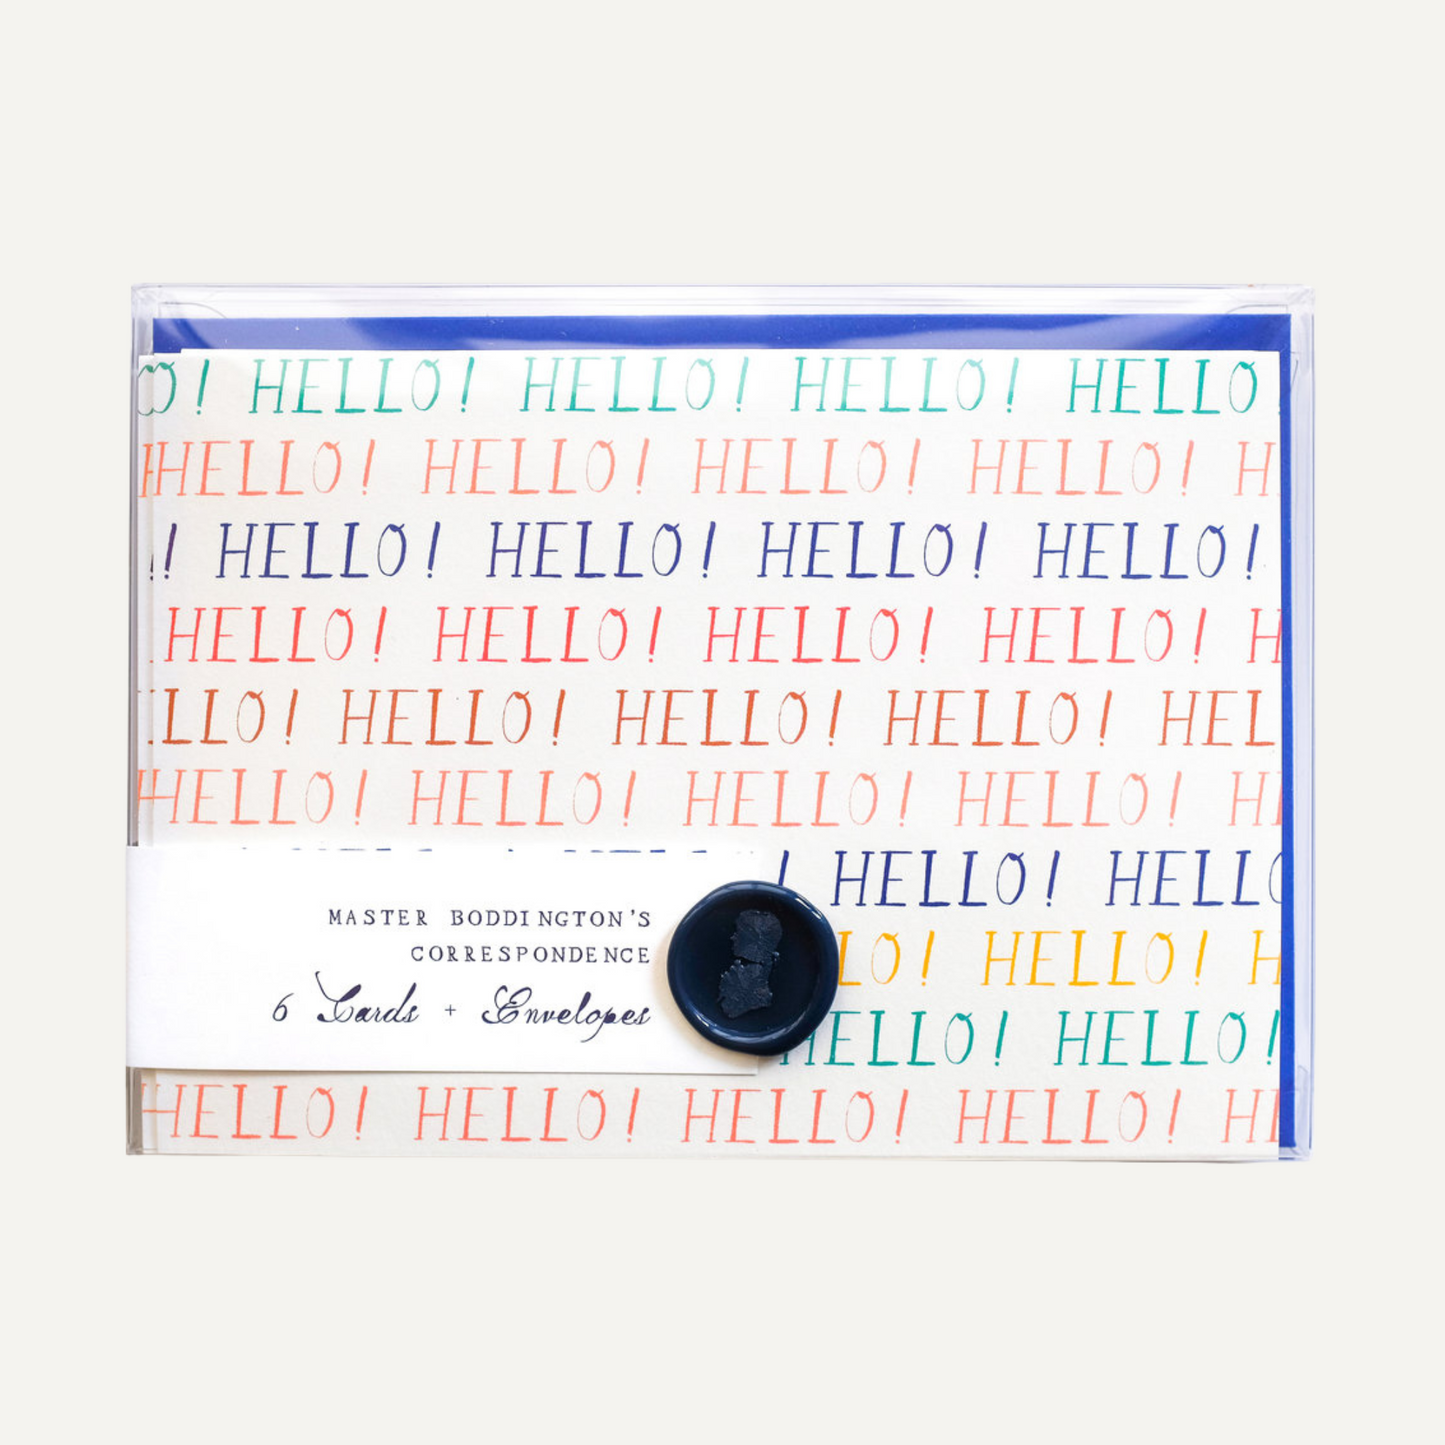 O! HELLO! HELLO! HELLO! HELLO
HELLO! HELLO! HELLO! HELLO! H
! HELLO! HELLO! HELLO! HELLO!
HELLO! HELLO! HELLO! HELLO! H
LLO! HELLO! HELLO! HELLO! HEL
HELLO! HELLO! HELLO! HELLO! H
! HELLO! HELLO
LO! HELLO! H
HELLO! HELLO!
HELLO! HELLO! HELLO! HELLO! H
MASTER BODDINGTON'S
CORRESPONDENCE
6 Cards + Envelopes